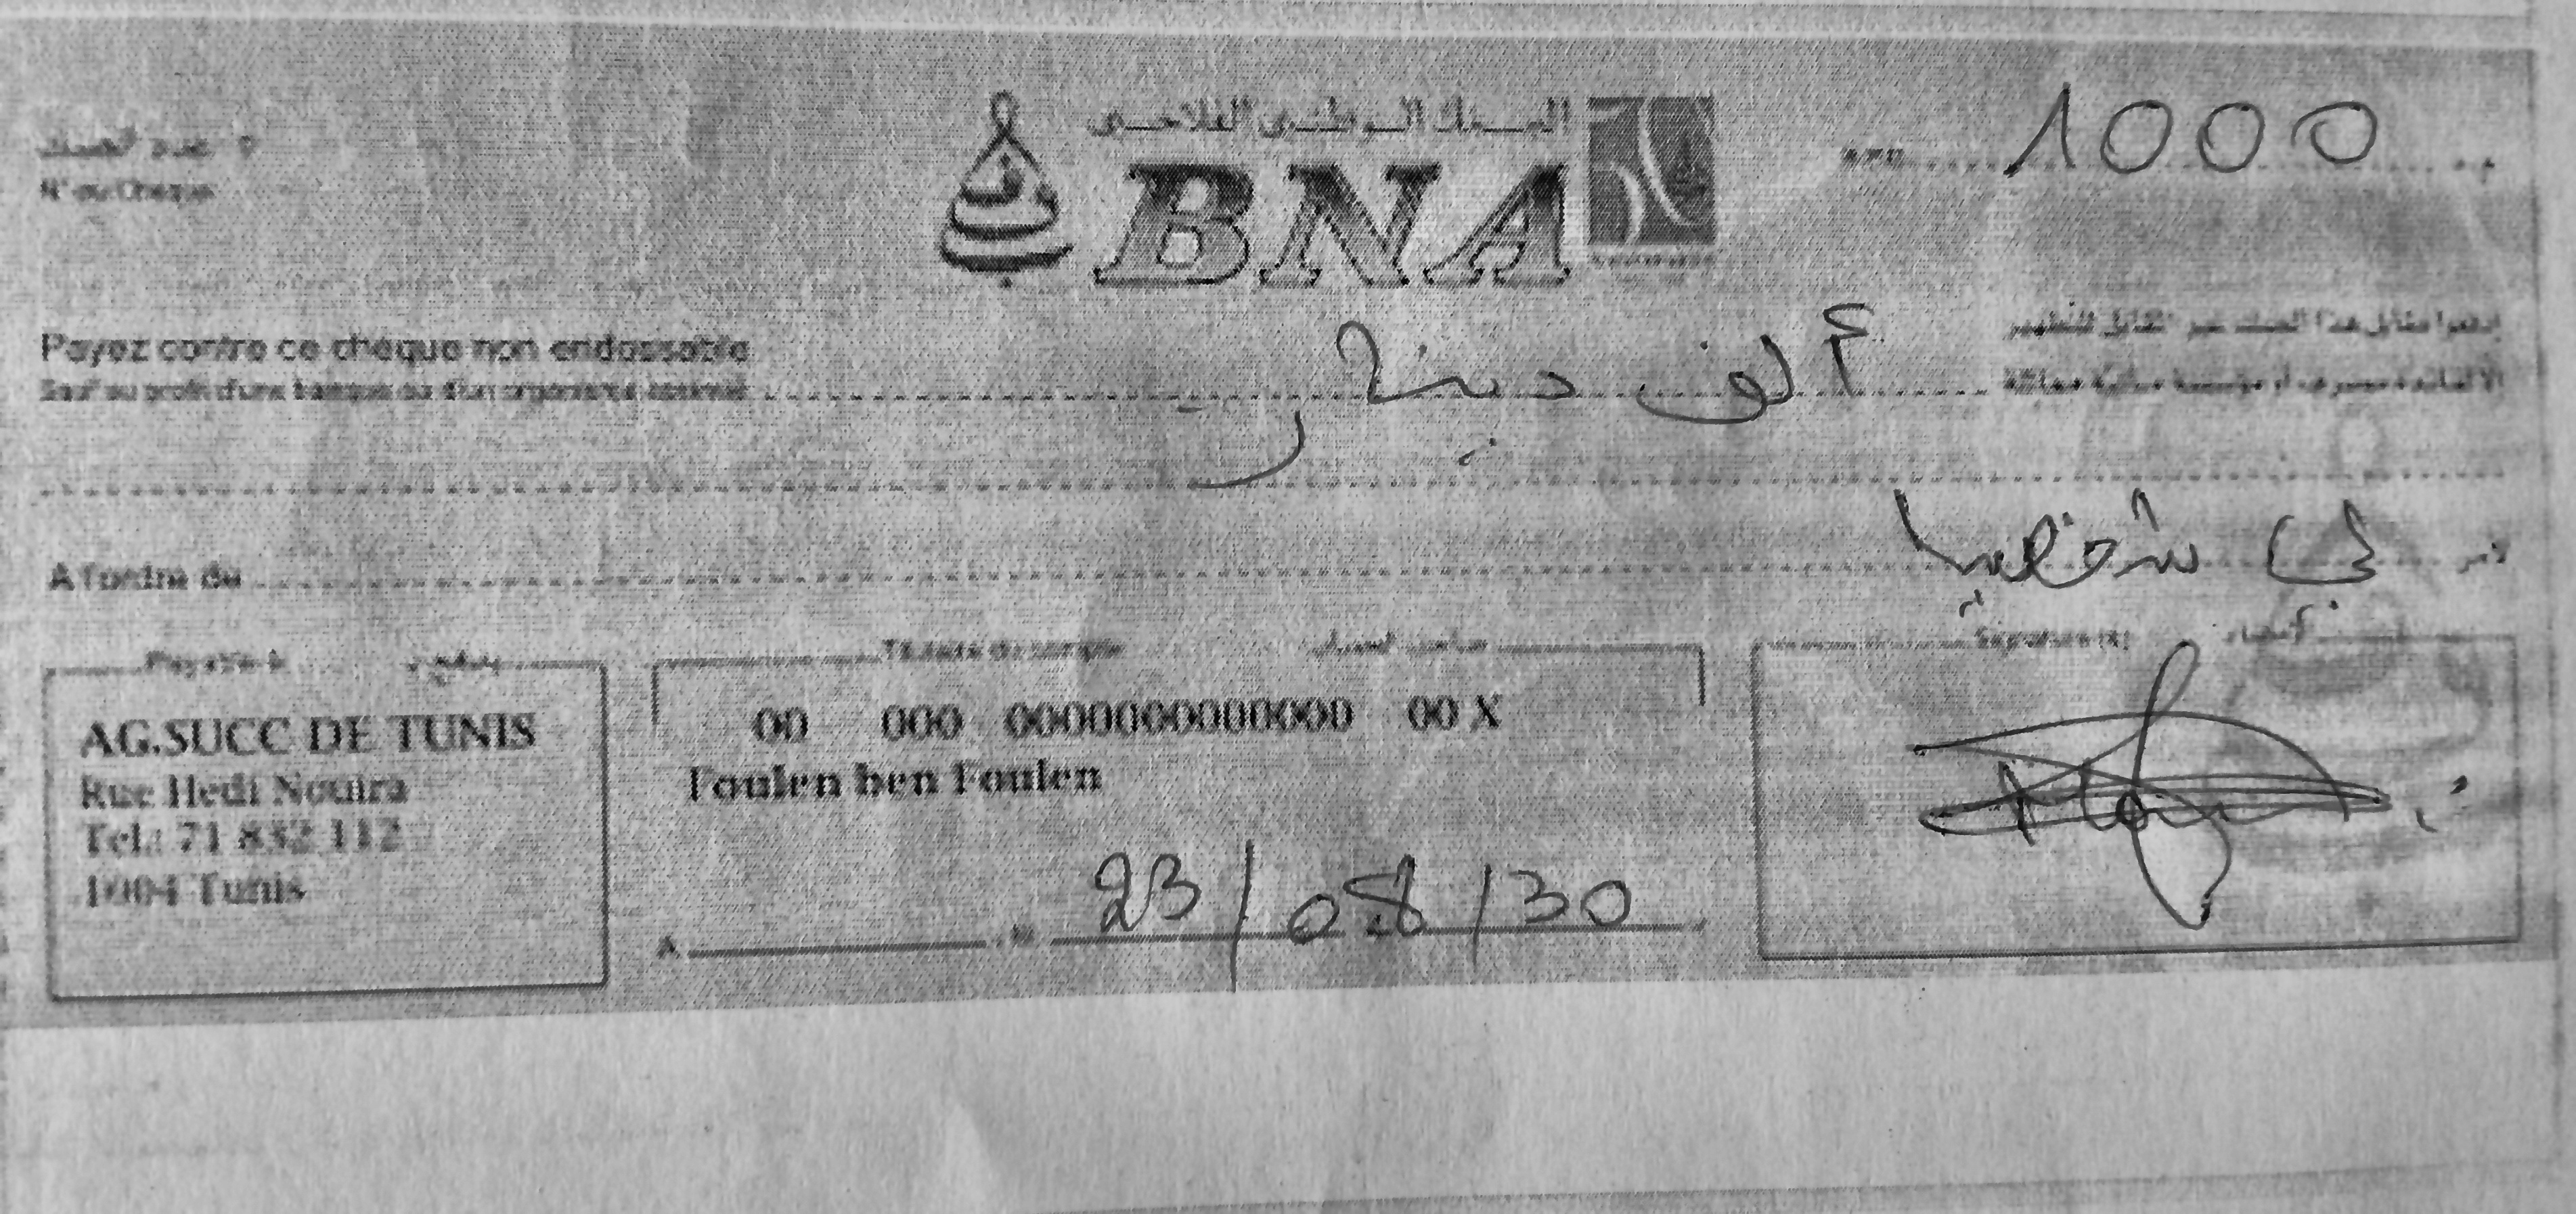 عدد الصك
N° du Chèque
البنك الوطني الفلاحي
BNA
1000
Payez contre ce chèque non endossable
Sauf au profit d'une banque ou d'un organisme assimilé
ألف دينار
إدفعوا مقابل هذا الصك غير القابل للتظهير
A l'ordre de
لي شخصيا
لأمر
Payable à
يدفع بـ
AG.SUCC DE TUNIS
Rue Hedi Nouira
Tel.: 71 832 112
1004 Tunis
Titulaire du compte
صاحب الحساب
00 000 0000000000000 00 X
Foulen ben Foulen
A
23/08/30
Signature(s)
الإمضاء